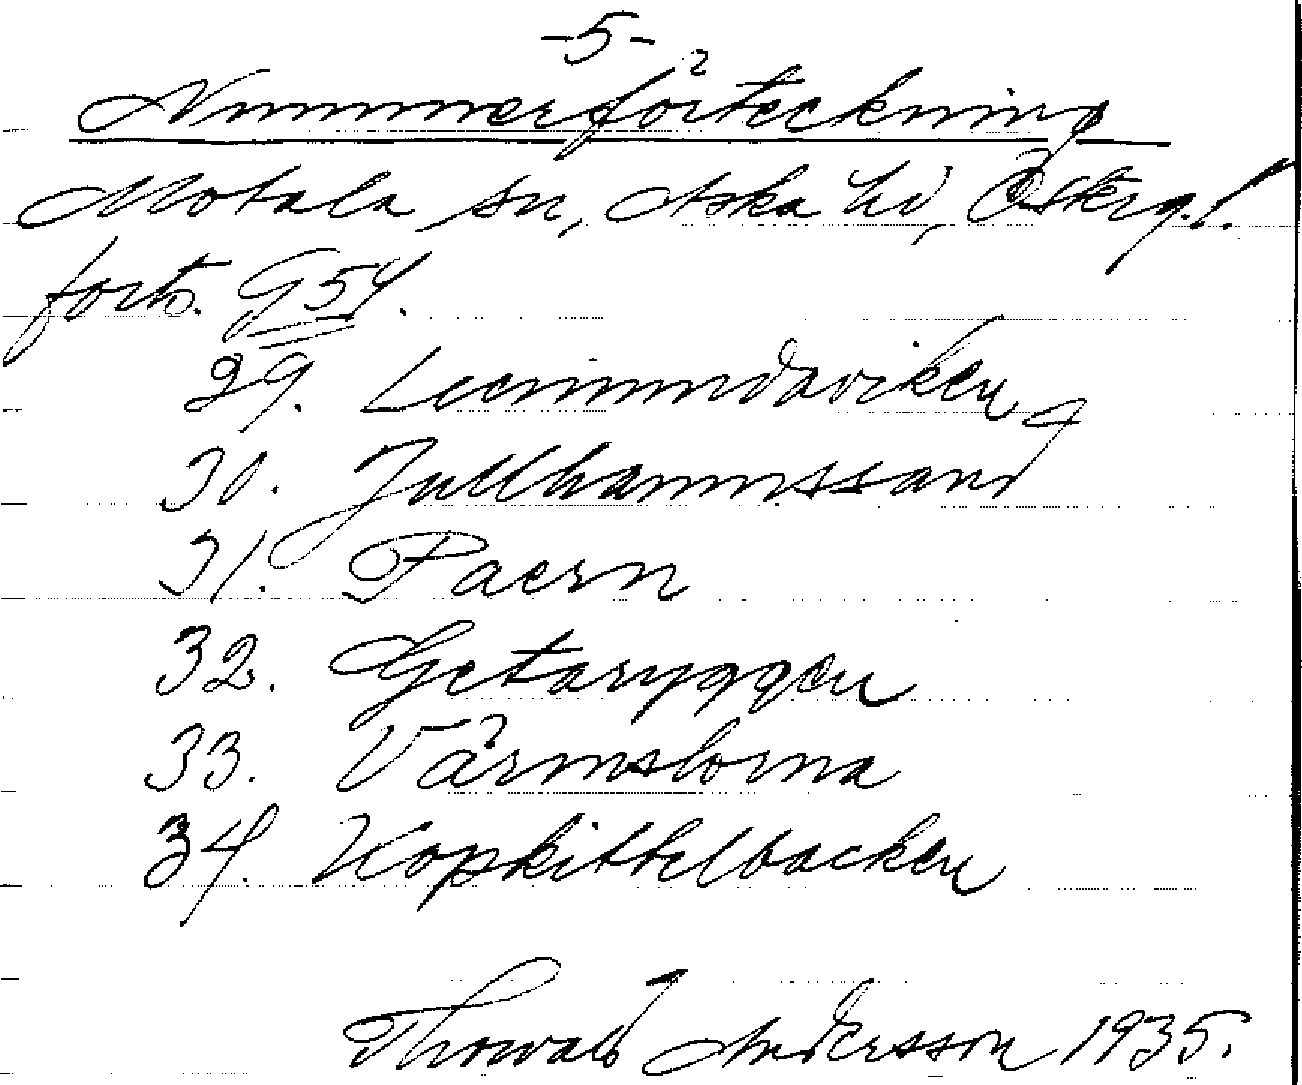 -5-
Nummerförteckning
Motala sn, Aska hd, Östergl.
forts. G54.
29. Lemundaviken
30. Jullhamnssand
31. Paern
32. Getaryggen
33. Värmslorna
34. Kopkittelbacken
Thorvald Andersson 1935.